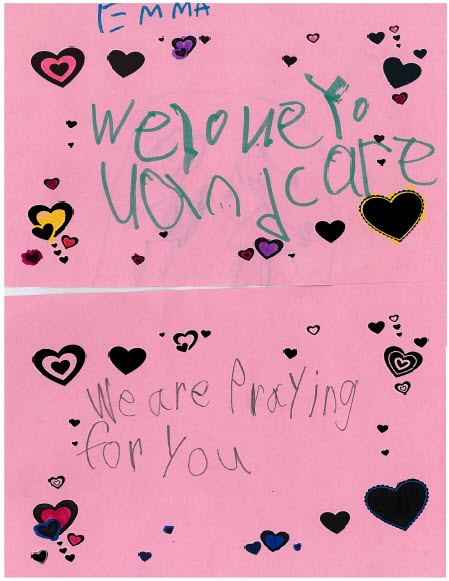 EMMA
We love Yo
u and care
We are Praying
for You